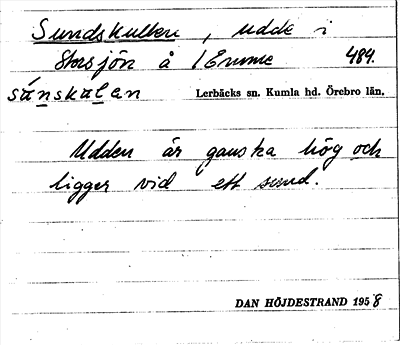 Sundskullen, udde i
Storsjön å 1 Emme 484.
sánskalan Lerbäcks sn. Kumla hd. Örebro län.
Udden är ganska hög och
ligger vid ett sund.
DAN HÖJDESTRAND 1958